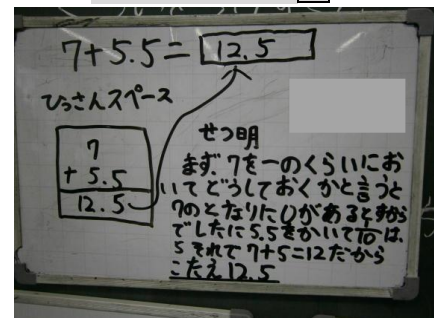 7+5.5= 12.5
ひっさんスペース
7
+ 5.5
12.5
せつ明
まず、7を一のくらいにお
いてどうしておくかと言うと
7のとなりに0があるとすから
でしたに5.5をかいて1/10は、
5 それで7+5=12だから
こたえ12.5